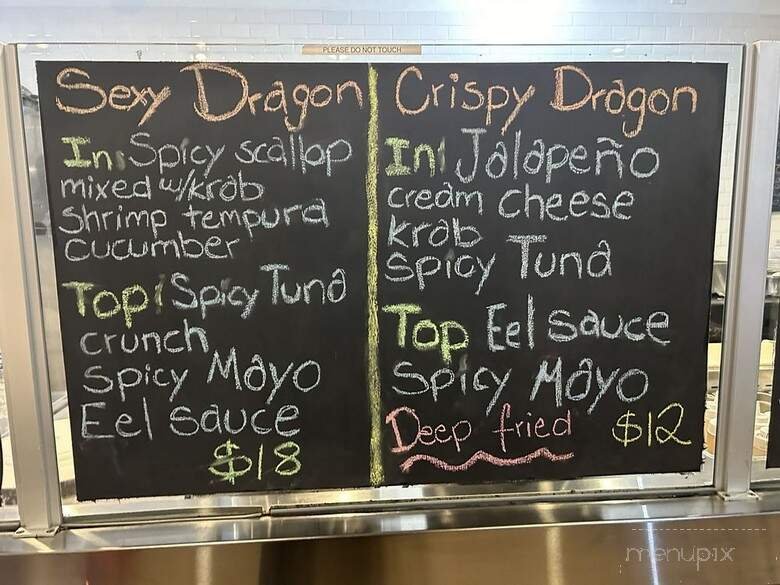 PLEASE DO NOT TOUCH
Sexy Dragon
In: Spicy scallop
mixed w/krab
shrimp tempura
cucumber
Top: Spicy Tuna
crunch
spicy Mayo
Eel sauce
$18
Crispy Dragon
In: Jalapeño
cream cheese
krab
spicy Tuna
Top Eel sauce
spicy Mayo
Deep fried $12
menupix